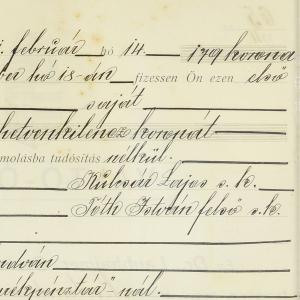 február hó 14. 179 korona
hó 15-én fizessen Ön ezen első
saját
hetvenkilencz koronát
molásba tudósitás nélkül.
Kulcsár Lajos s. k.
Tóth István felső s. k.
pénztár"-nál.